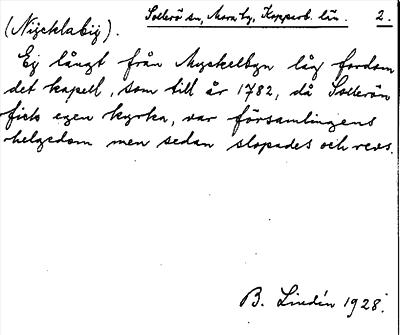 Sollerö sn, Mora tg, Kopparb. län. 2.
(Nijcklabij).
Ej långt från Myckelbyn låg fordom
det kapell, som till år 1782, då Sollerön
fick egen kyrka, var församlingens
helgedom men sedan slopades och revs.
B. Lindén 1928.